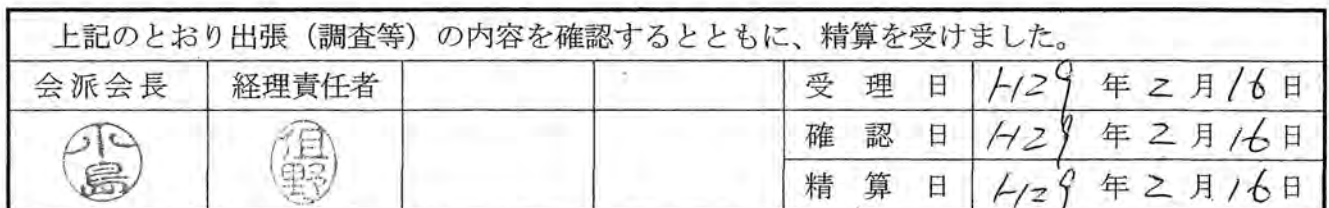 上記のとおり出張（調査等）の内容を確認するとともに、精算を受けました。
会派会長 経理責任者 受理日 H29年2月16日
小島 但野 確認日 H29年2月16日
精算日 H29年2月16日